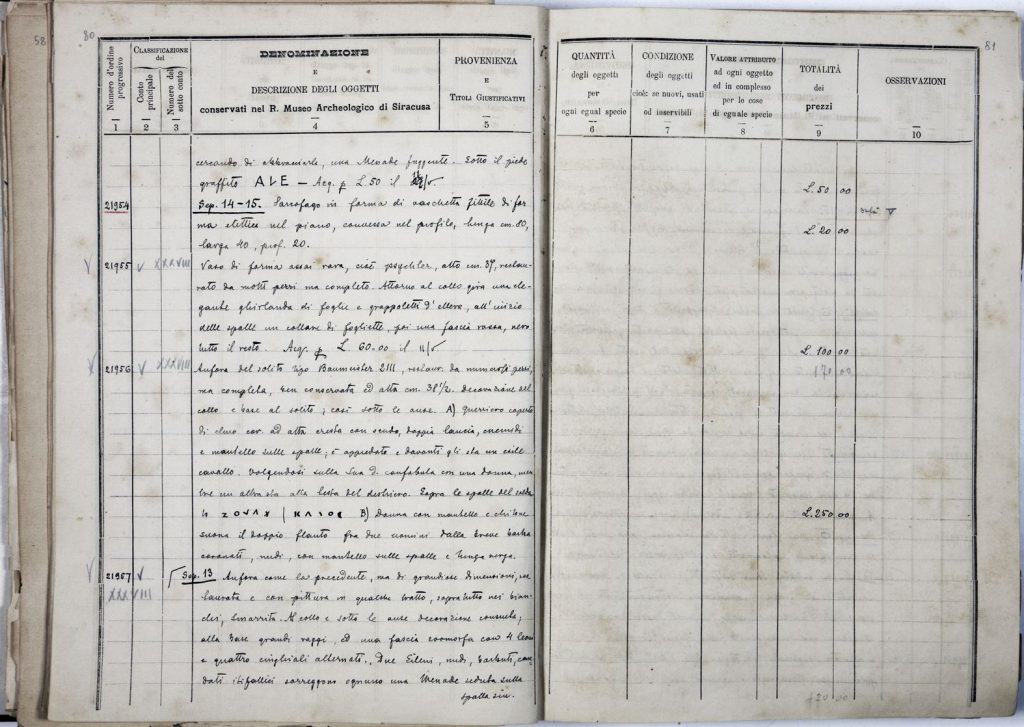 58
80
Numero d'ordine progressivo
CLASSIFICAZIONE
del
Conto principale
Numero del sotto conto
DENOMINAZIONE
E
DESCRIZIONE DEGLI OGGETTI
conservati nel R. Museo Archeologico di Siracusa
PROVENIENZA
E
TITOLI GIUSTIFICATIVI
1 2 3 4 5
cercando di abbracciarla, una Menade fuggente. Sotto il piede
graffito ALE — Acq. p L. 50 il
21954 Sep. 14-15. Sarcofago in forma di vaschetta fittile di for
ma elittica nel piano, convessa nel profilo, lunga cm. 80,
larga 40, prof. 20.
V 21955 V XXXVIII Vaso di forma assai rara, cioè psychter, alto cm. 37, restau
rato da molti pezzi ma completo. Attorno al collo gira una ele
gante ghirlanda di foglie e grappoletti d'ellera, all'inizio
delle spalle un collare di fogliette, poi una fascia rossa, nero
tutto il resto. Acq. p L. 60-00 il
21956 V XXXVIII Anfora del solito tipo Baumeister 2111, restaur. da numerosi pezzi,
ma completa, ben conservata ed alta cm. 38½. Decorazione del
collo e base al solito; così sotto le anse. A) guerriero coperto
di elmo cor. ad alta cresta con scudo, doppia lancia, cnemidi
e mantello sulle spalle; è appiedato e davanti gli sta un
cavallo. Volgendosi sulla sua d. confabula con una donna, men
tre un altra sta alla testa del destriero. Sopra le spalle del
B) Donna con mantello e chitone
suona il doppio flauto fra due uomini dalla breve barba
coronati, nudi, con mantello sulle spalle e lunga verga.
V 21957 V Sep. 13 Anfora come la precedente, ma di grandiose dimensioni, re
XXXVIII
staurata e con pittura in qualche tratto, sopratutto nei bian
chi, smarrita. Al collo e sotto le anse decorazione consueta;
alla base grandi raggi, ed una fascia zoomorfa con 4 leoni
e quattro cinghiali alternati. Due Sileni, nudi, barbuti, cau
dati itifallici sorreggono ognuno una Menade seduta sulla
spalla sin.
81
QUANTITÀ
degli oggetti
per
ogni egual specie
CONDIZIONE
degli oggetti
cioè: se nuovi, usati
od inservibili
VALORE ATTRIBUITO
ad ogni oggetto
ed in complesso
per le cose
di eguale specie
TOTALITÀ
dei
prezzi
OSSERVAZIONI
6 7 8 9 10
L. 50 00
L. 20 00
L. 100 00
170 00
L. 250 00
420 00